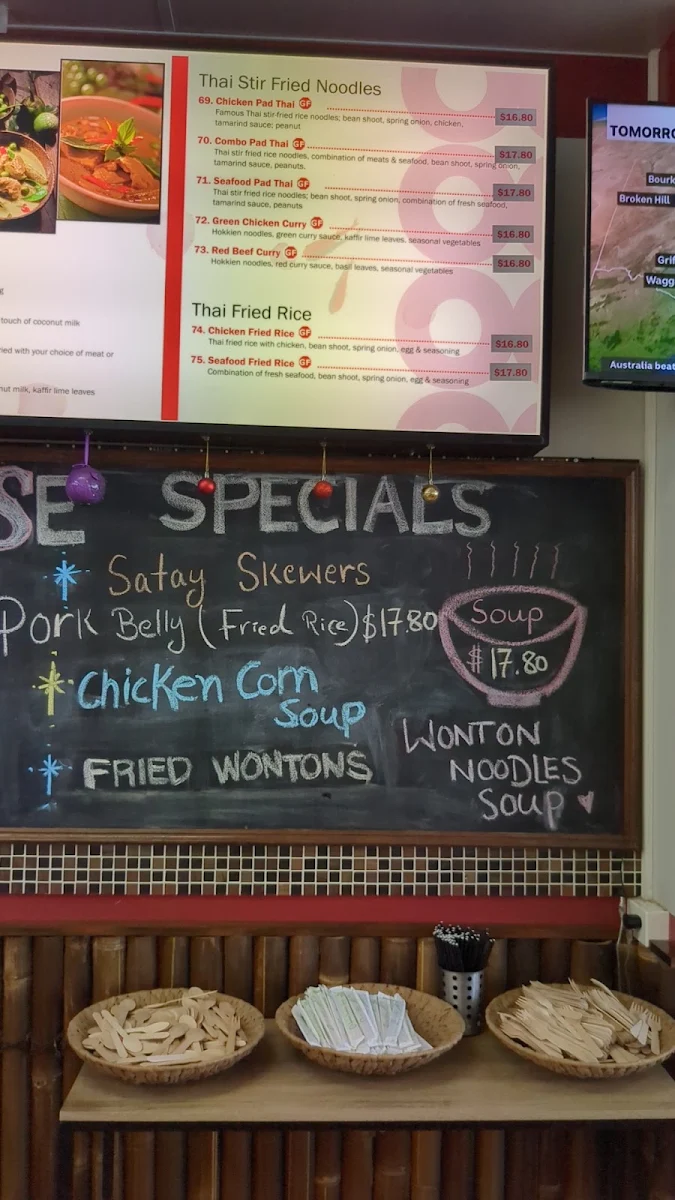 Thai Stir Fried Noodles
69. Chicken Pad Thai GF $16.80
Famous Thai stir-fried rice noodles; bean shoot, spring onion, chicken,
tamarind sauce; peanut
70. Combo Pad Thai GF $17.80
Thai stir fried rice noodles, combination of meats & seafood, bean shoot, spring onion,
tamarind sauce, peanuts.
71. Seafood Pad Thai GF $17.80
Thai stir fried rice noodles; bean shoot, spring onion, combination of fresh seafood,
tamarind sauce, peanuts
72. Green Chicken Curry GF $16.80
Hokkien noodles, green curry sauce, kaffir lime leaves, seasonal vegetables
73. Red Beef Curry GF $16.80
Hokkien noodles, red curry sauce, basil leaves, seasonal vegetables
Thai Fried Rice
74. Chicken Fried Rice GF $16.80
Thai fried rice with chicken, bean shoot, spring onion, egg & seasoning
75. Seafood Fried Rice GF $17.80
Combination of fresh seafood, bean shoot, spring onion, egg & seasoning
touch of coconut milk
ied with your choice of meat or
nut milk, kaffir lime leaves
TOMORRO
Bourk
Broken Hill
Grif
Wagg
Australia beat
SE SPECIALS
Satay Skewers
Pork Belly (Fried Rice) $17.80
Chicken Corn
Soup
FRIED WONTONS
Soup
$17.80
WONTON
NOODLES
SOUP